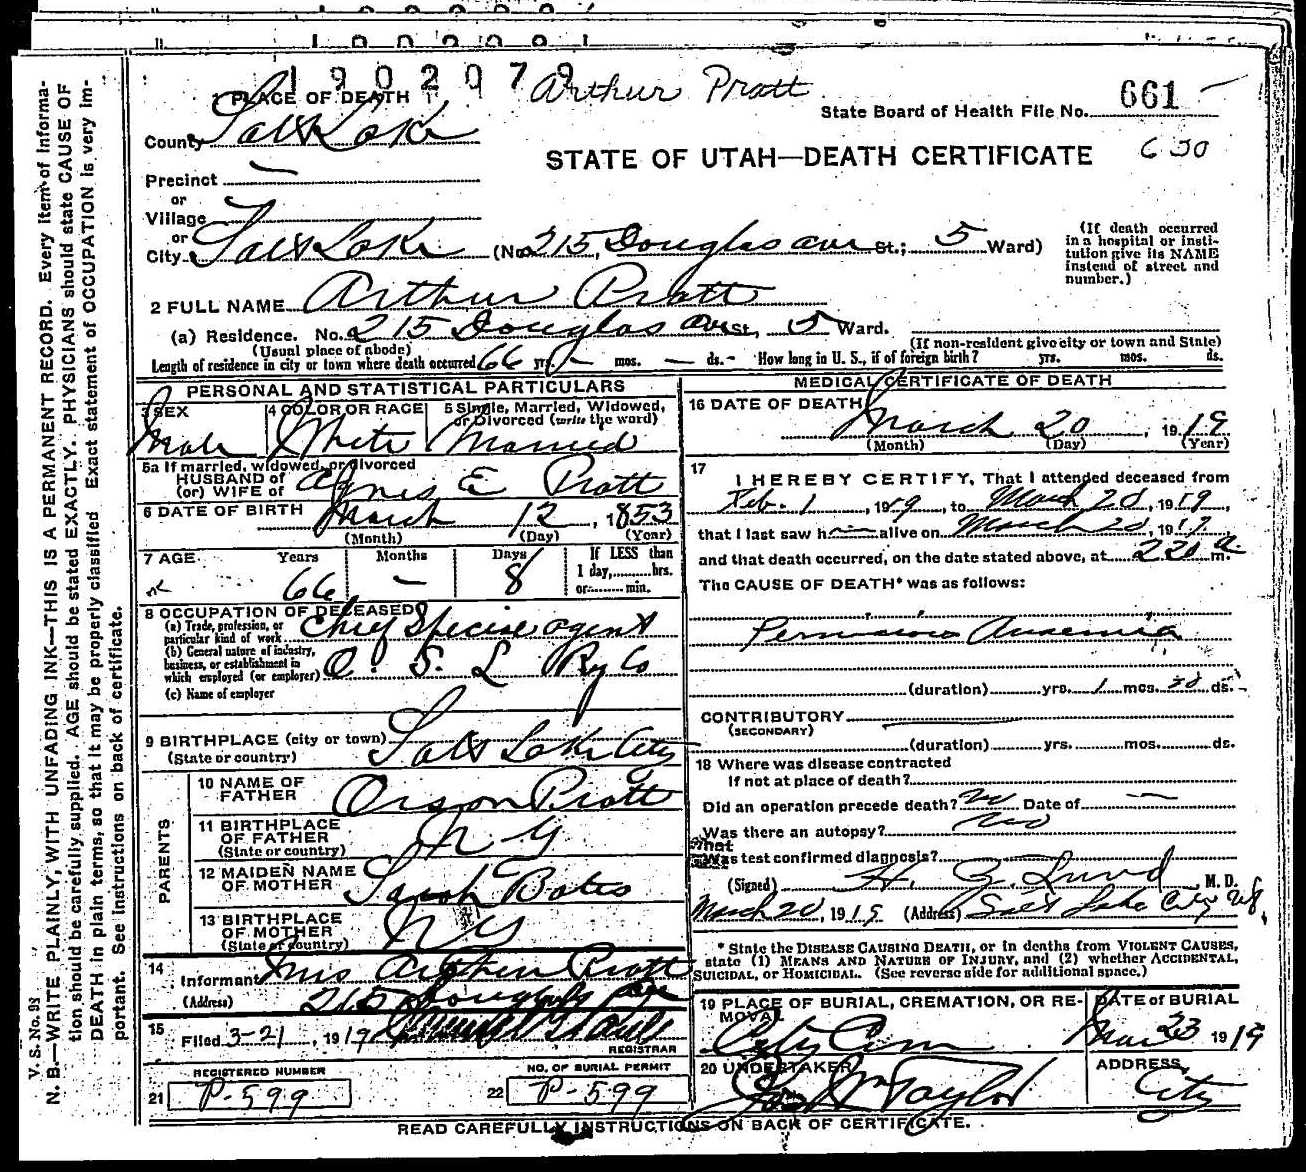 1902079
Arthur Pratt
1 PLACE OF DEATH
State Board of Health File No. 661
County Salt Lake
STATE OF UTAH—DEATH CERTIFICATE
650
Precinct —
or
Village
or
City Salt Lake (No. 215, Douglas ave St.; 5 Ward)
(If death occurred in a hospital or insti-
tution give its NAME
instead of street and
number.)
2 FULL NAME Arthur Pratt
(a) Residence. No. 215 Douglas Ave St., 5 Ward.
(Usual place of abode)
(If non-resident give city or town and State)
Length of residence in city or town where death occurred 66 yrs. — mos. — ds. - How long in U. S., if of foreign birth? yrs. mos. ds.
PERSONAL AND STATISTICAL PARTICULARS
3 SEX
Male
4 COLOR OR RACE
White
5 Single, Married, Widowed,
or Divorced (write the word)
Married
5a If married, widowed, or divorced
HUSBAND of
(or) WIFE of Agnes E Pratt
6 DATE OF BIRTH March 12, 1853
(Month) (Day) (Year)
7 AGE Years Months Days If LESS than
1 day,.....hrs.
or.....min.
66 — 8
8 OCCUPATION OF DECEASED
(a) Trade, profession, or
particular kind of work Chief Special agent
(b) General nature of industry,
business, or establishment in
which employed (or employer) O. S. L Ry Co
(c) Name of employer
9 BIRTHPLACE (city or town) Salt Lake City
(State or country)
PARENTS
10 NAME OF
FATHER Orson Pratt
11 BIRTHPLACE
OF FATHER
(State or country) N Y
12 MAIDEN NAME
OF MOTHER Sarah Bates
13 BIRTHPLACE
OF MOTHER
(State or country) NY
14 Informant Mrs Arthur Pratt
(Address) 215 Douglas Ave
15 Filed 3-21, 1919
REGISTRAR
REGISTERED NUMBER
21 P-599
NO. OF BURIAL PERMIT
22 P-599
MEDICAL CERTIFICATE OF DEATH
16 DATE OF DEATH
March 20, 1919
(Month) (Day) (Year)
17 I HEREBY CERTIFY, That I attended deceased from
Feb. 1, 1919, to March 20, 1919,
that I last saw h— alive on March 20, 1919
and that death occurred, on the date stated above, at 220 a m.
The CAUSE OF DEATH* was as follows:
Pernicious Anaemia
(duration) yrs. 1 mos. ds.
CONTRIBUTORY
(SECONDARY)
(duration) yrs. mos. ds.
18 Where was disease contracted
if not at place of death?
Did an operation precede death? no Date of —
Was there an autopsy? no
What
test confirmed diagnosis?
(Signed) H. Z. Lund, M. D.
March 20, 1919 (Address) Salt Lake City Ut.
* State the DISEASE CAUSING DEATH, or in deaths from VIOLENT CAUSES,
state (1) MEANS AND NATURE OF INJURY, and (2) whether ACCIDENTAL,
SUICIDAL, or HOMICIDAL. (See reverse side for additional space.)
19 PLACE OF BURIAL, CREMATION, OR RE-
MOVAL
City Cem
DATE of BURIAL
Mar 23 1919
20 UNDERTAKER
Jos Wm Taylor
ADDRESS
City
READ CAREFULLY INSTRUCTIONS ON BACK OF CERTIFICATE.
V. S. No. 98
N. B.—WRITE PLAINLY, WITH UNFADING INK—THIS IS A PERMANENT RECORD. Every item of informa-
tion should be carefully supplied. AGE should be stated EXACTLY. PHYSICIANS should state CAUSE OF
DEATH in plain terms, so that it may be properly classified. Exact statement of OCCUPATION is very im-
portant. See instructions on back of certificate.